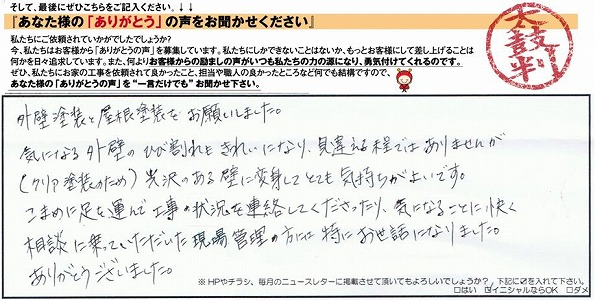 そして、最後にぜひこちらをご記入ください。↓↓
『あなた様の「ありがとう」の声をお聞かせください』
私たちにご依頼されていかがでしたでしょうか?
今、私たちはお客様から「ありがとうの声」を募集しています。私たちにしかできないことはないか、もっとお客様にして差し上げることは
何かを日々追求しています。また、何よりお客様からの励ましの声がいつも私たちの力の源になり、勇気付けてくれるのです。
ぜひ、私たちにお家の工事を依頼されて良かったこと、担当や職人の良かったところなど何でも結構ですので、
あなた様の「ありがとうの声」を“一言だけでも”お聞かせ下さい。
太鼓判
外壁塗装と屋根塗装をお願いしました。
気になる外壁のひび割れもきれいになり、見違える程ではありませんが
(クリア塗装のため)光沢のある壁に変身してとても気持ちがよいです。
こまめに足を運んで工事の状況を連絡してくださったり、気になることに快く
相談に乗っていただいた現場管理の方には特にお世話になりました。
ありがとうございました。
※HPやチラシ、毎月のニュースレターに掲載させて頂いてもよろしいでしょうか? 下記に☑を入れて下さい。
□はい ☑イニシャルならOK □ダメ